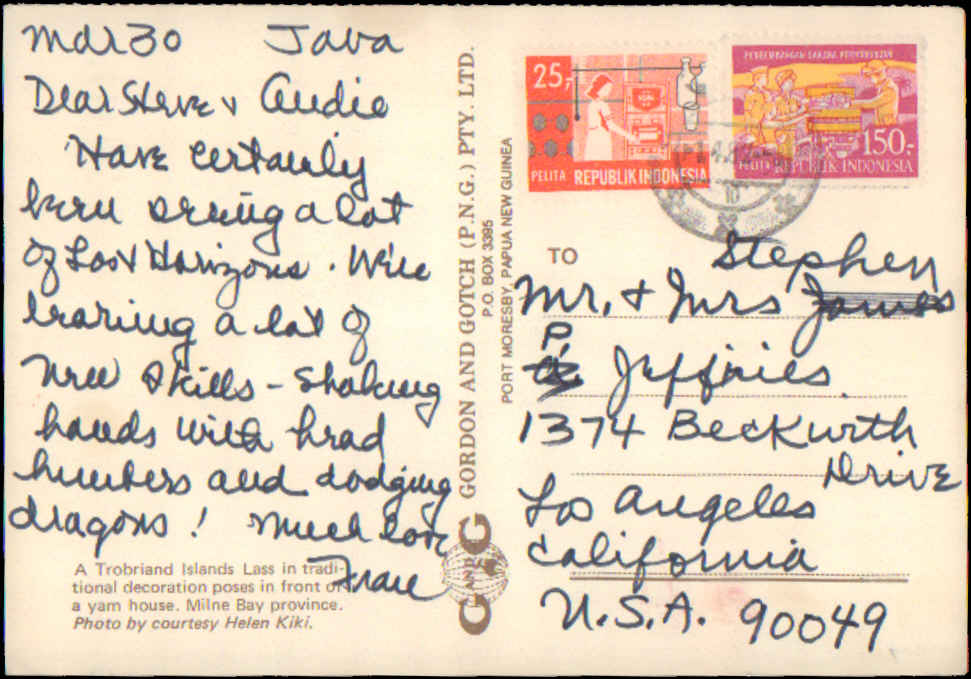 Mar 30 Java
Dear Steve & Audie
Have certainly
been seeing a lot
of Lost Horizons. We're
learning a lot of
new skills - shaking
hands with head
hunters and dodging
dragons! Much love
Fran
A Trobriand Islands Lass in tradi-
tional decoration poses in front of
a yam house. Milne Bay province.
Photo by courtesy Helen Kiki.
GORDON AND GOTCH (P.N.G.) PTY. LTD.
P.O. BOX 3395
PORT MORESBY, PAPUA NEW GUINEA
G AND G
25,-
PELITA REPUBLIK INDONESIA
PENGEMBANGAN SARANA
150,-
PELITA REPUBLIK INDONESIA
TO
Stephen
Mr. & Mrs James
P.
Jeffries
1374 Beckwith
Drive
Los Angeles
California
U.S.A. 90049